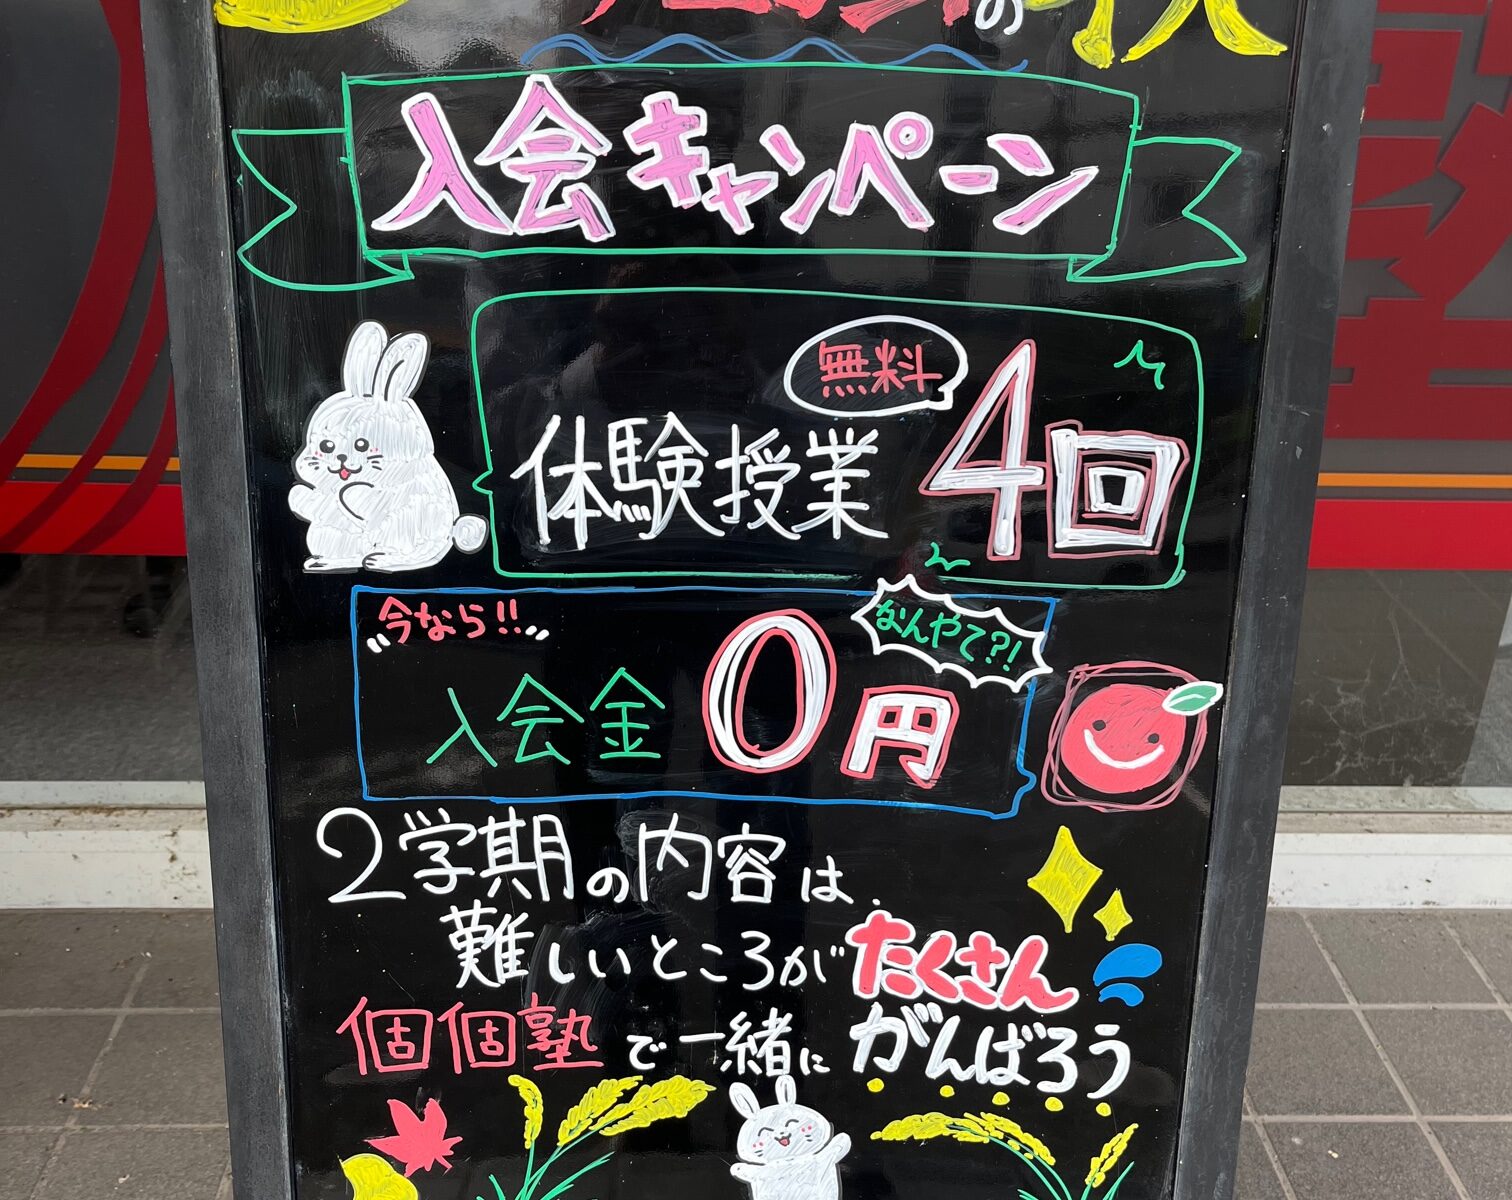 の
入会キャンペーン
無料
体験授業 4回
今なら!!
なんやて?!
入会金 0円
2学期の内容は、
難しいところがたくさん
個個塾で一緒にがんばろう